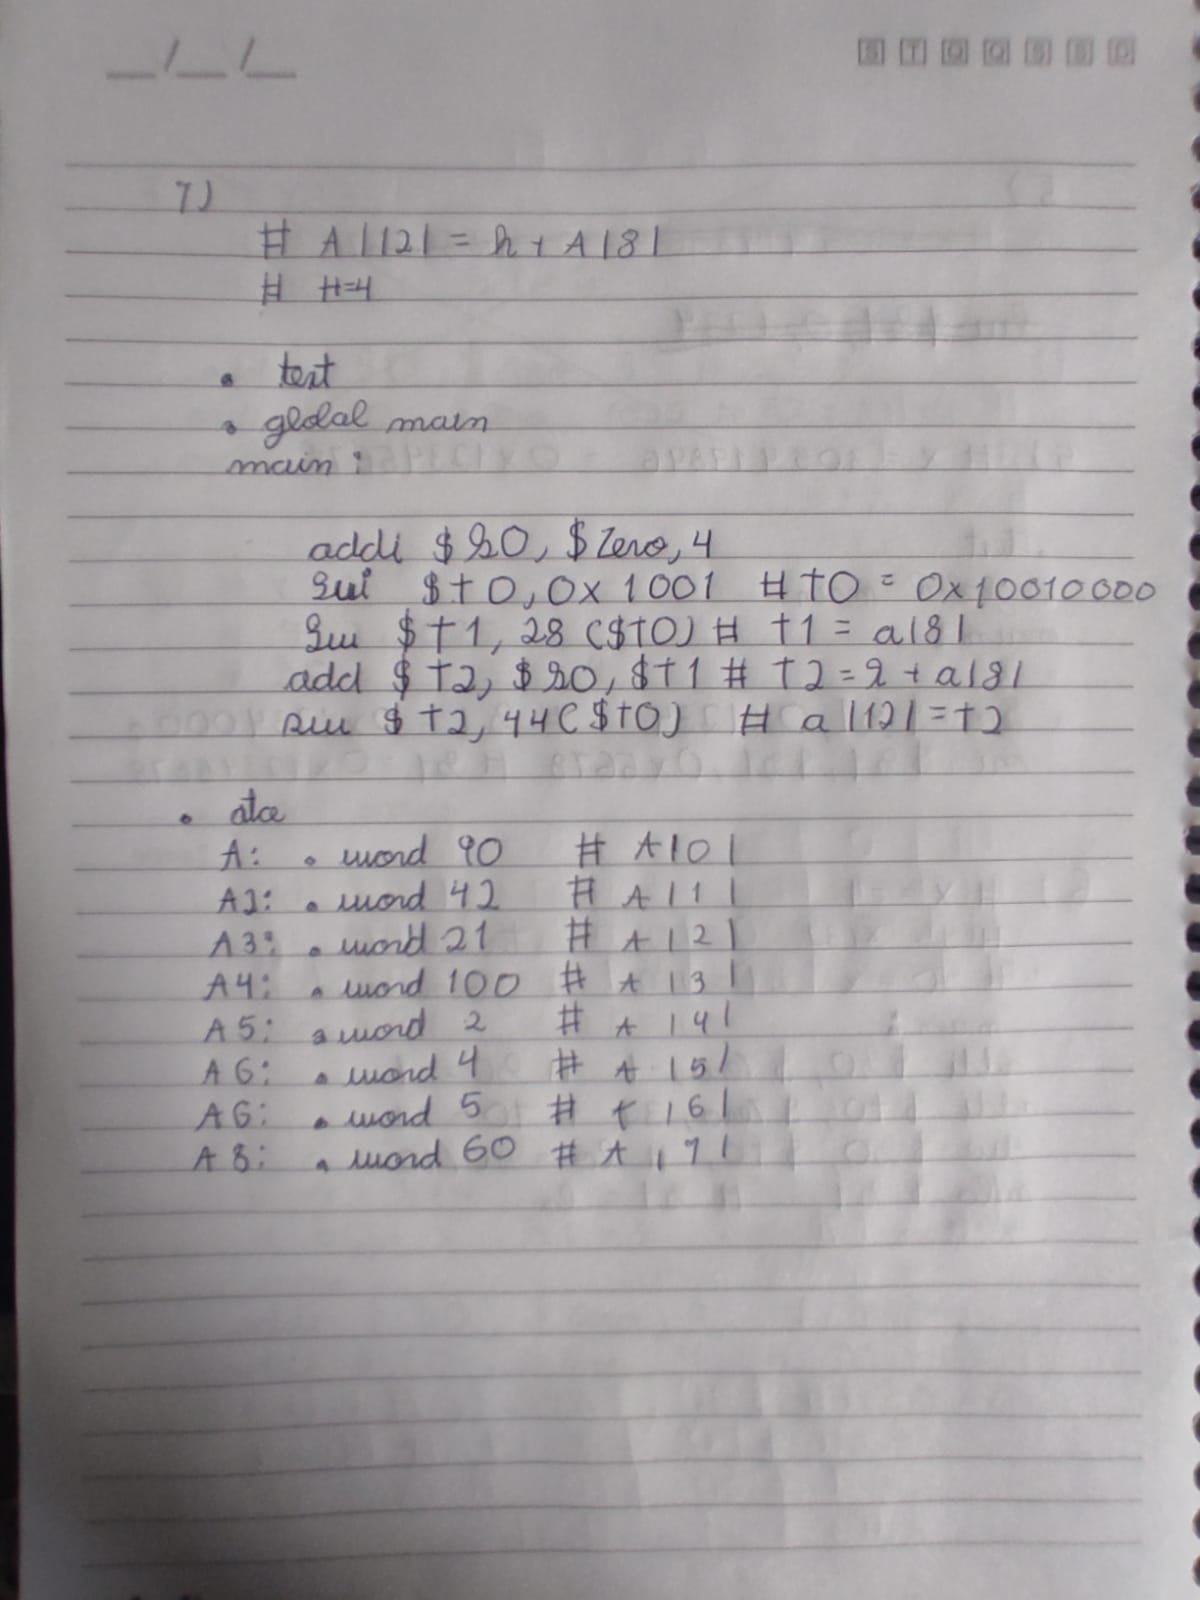 __/__/__ S T Q Q S S D
7)
# A|12| = h + A|8|
# H=4
. text
. glolal main
main:
addi $s0, $zero, 4
lui $t0, 0x1001 # t0 = 0x10010000
lw $t1, 28($t0) # t1 = a|8|
add $t2, $s0, $t1 # t2 = 2 + a|8|
sw $t2, 44($t0) # a|12| = t2
. ata
A: . word 90 # A|0|
A2: . word 42 # A|1|
A3: . word 21 # A|2|
A4: . word 100 # A|3|
A5: . word 2 # A|4|
A6: . word 4 # A|5|
A6: . word 5 # t|6|
A8: . word 60 # A|7|